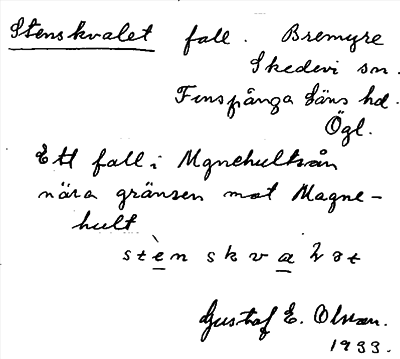 Stenskvalet fall. Bremyre
Skedevi sn.
Finspånga läns hd.
Ögl.
Ett fall i Mgnehultsån
nära gränsen mot Magne-
hult
stènskvalət
Gustaf E. Olsson.
1933.